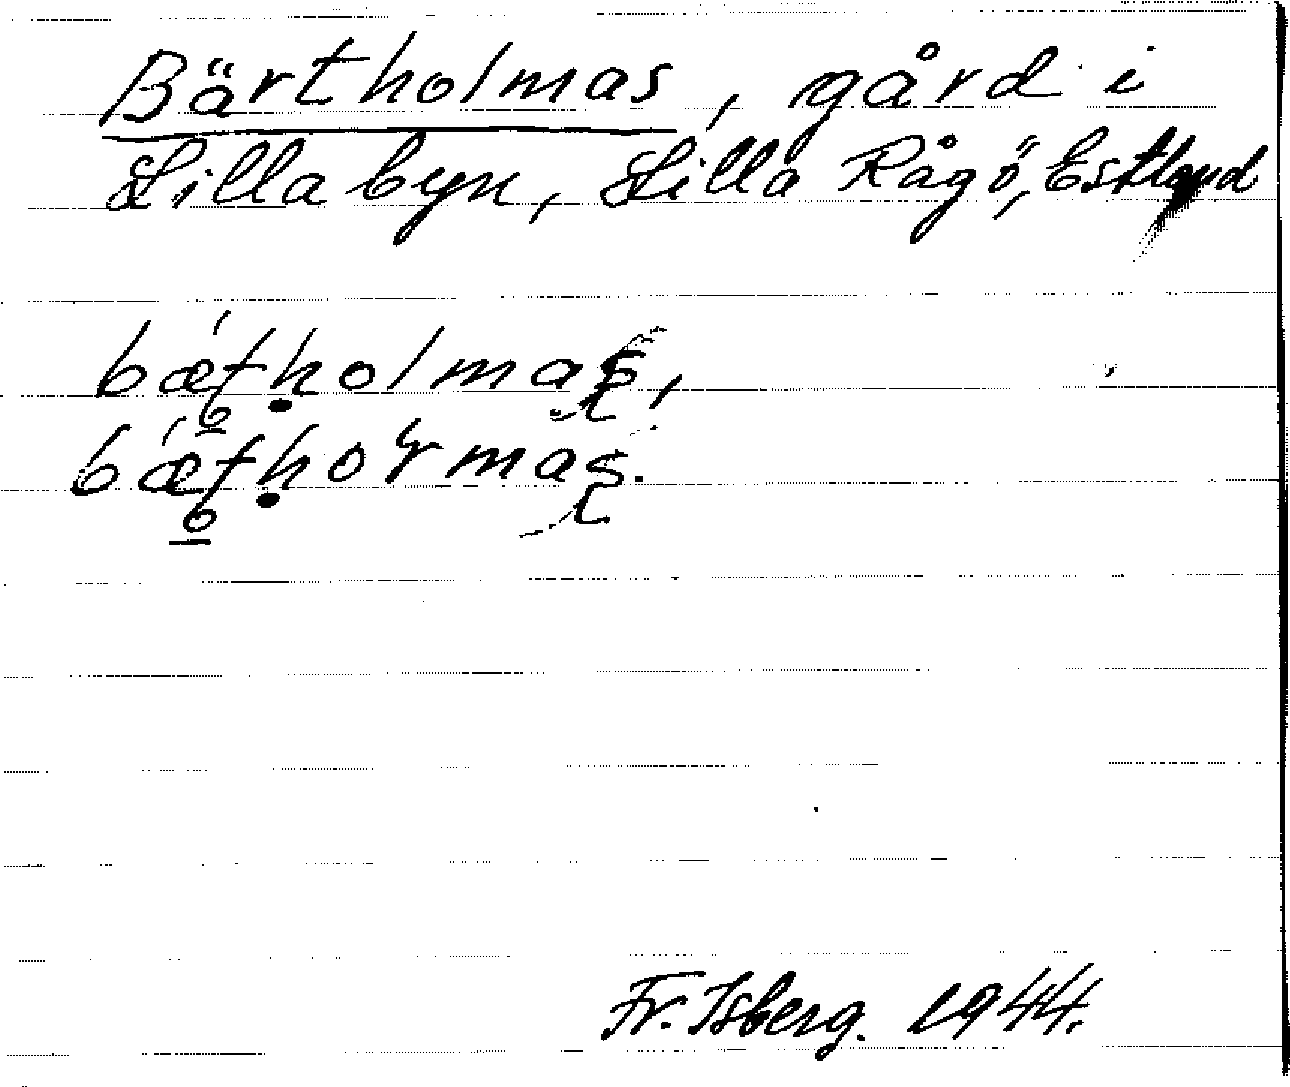 Bärtholmas, gård i
Lilla byn, Lilla Rågö, Estland
bæṭḥolmas,
bæṭḥoɽmas.
Fr. Isberg. 1944.